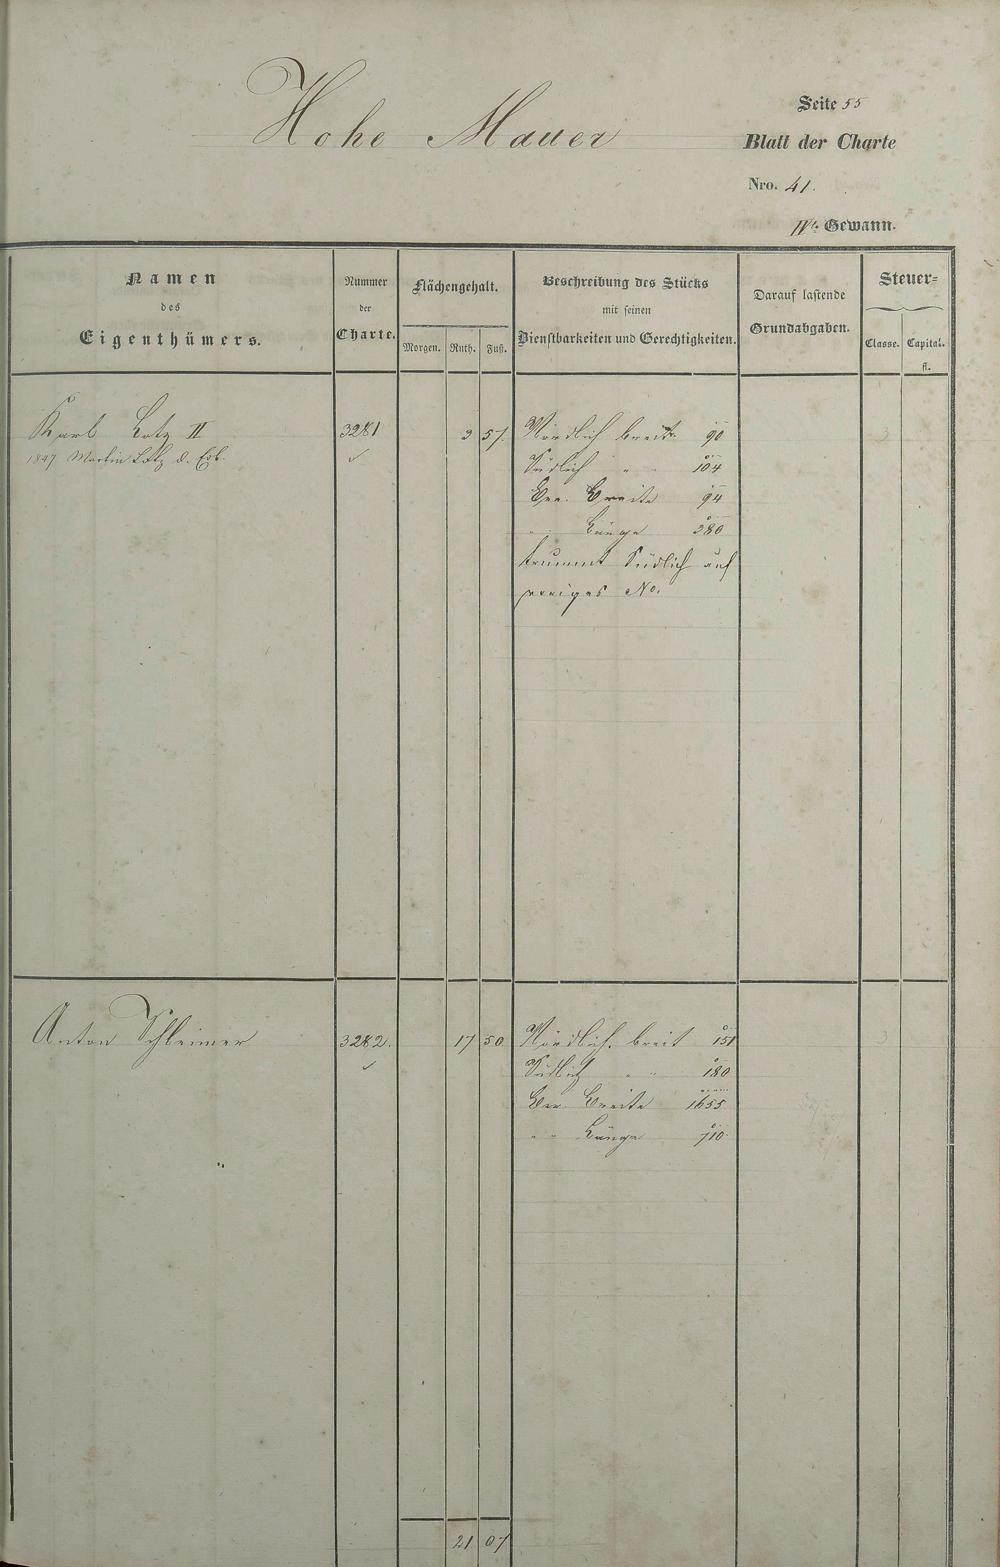 Hohe Mauer
Seite 55
Blatt der Charte
Nro. 41.
IVte Gewann.
Namen
des
Eigenthümers.
Nummer
der
Charte.
Flächengehalt.
Morgen. Ruth. Fuß.
Beschreibung des Stücks
mit seinen
Dienstbarkeiten und Gerechtigkeiten.
Darauf lastende
Grundabgaben.
Steuer=
Classe. Capital.
fl.
Karl Lotz II 3281 3 57. Nördlich breit 90 3
1847 Martin Lotz d. Erb. Südlich " " 104
Ger. Breite 94
" Länge 380
krummt Südlich auf
voriges No.
Anton Schleimer 3282. 17 50 Nördlich. breit 151 3
Südlich " " 180
Ger. Breite 1655
" " Länge 710
21 07